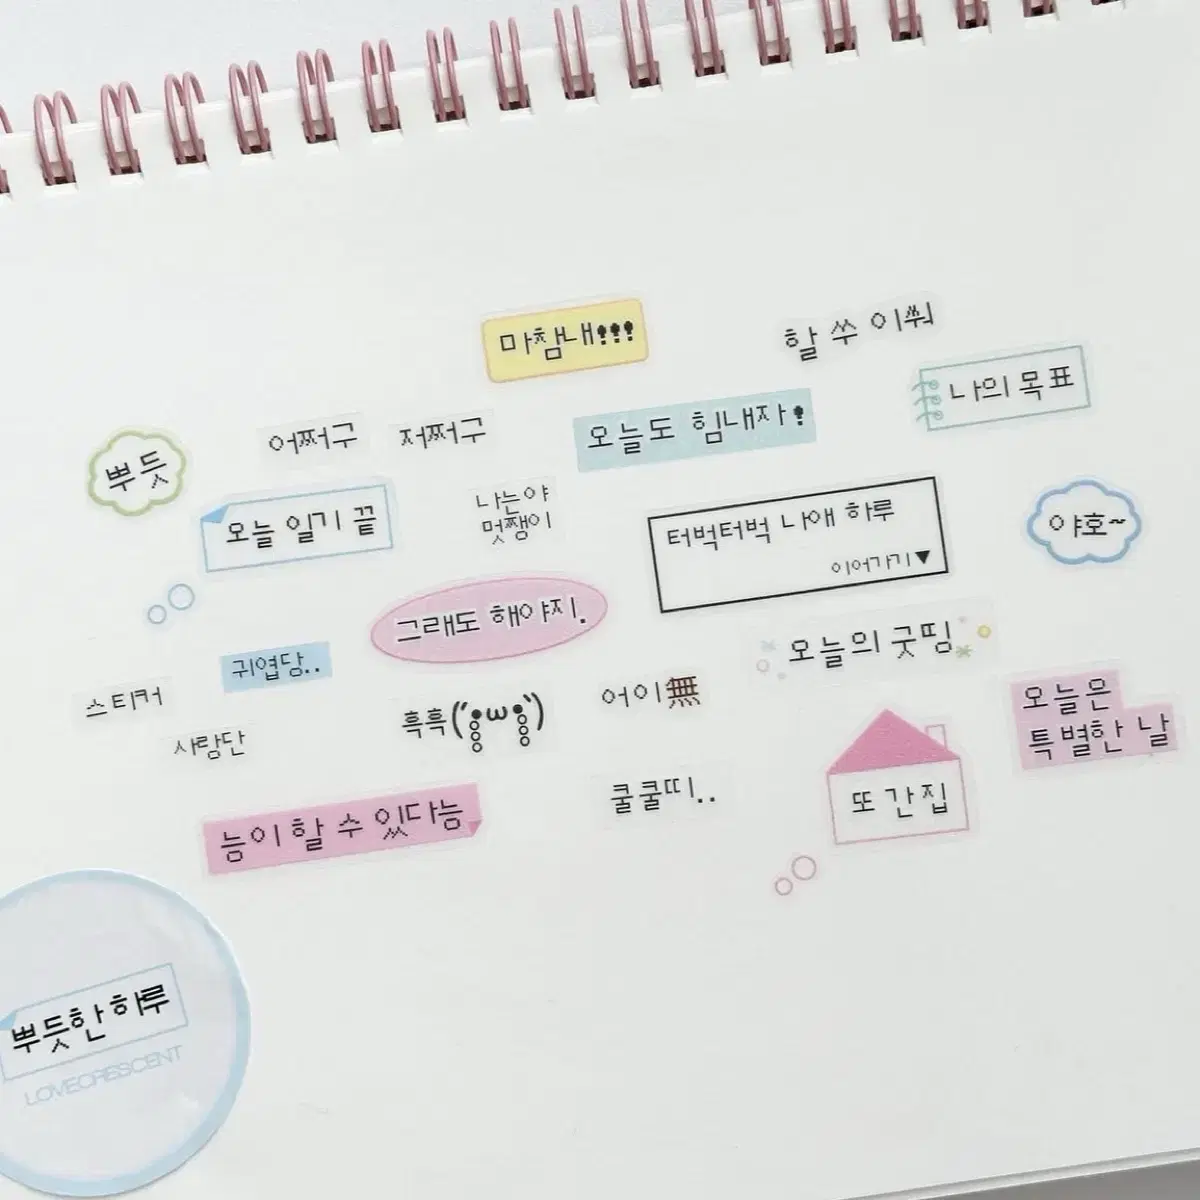 마참내!!!
할 쑤 이쒀
나의 목표
오늘도 힘내자!
어쩌구
저쩌구
뿌듯
오늘 일기 끝
나는야
멋쨍이
터벅터벅 나에 하루
이어가기▼
야호~
그래도 해야지.
오늘의 굿띵
귀엽당..
스티커
사랑단
흑흑(´;ω;`)
어이無
오늘은
특별한 날
쿨쿨띠..
또 간집
능이 할 수 있다능
뿌듯한 하루
LOVECRESCENT